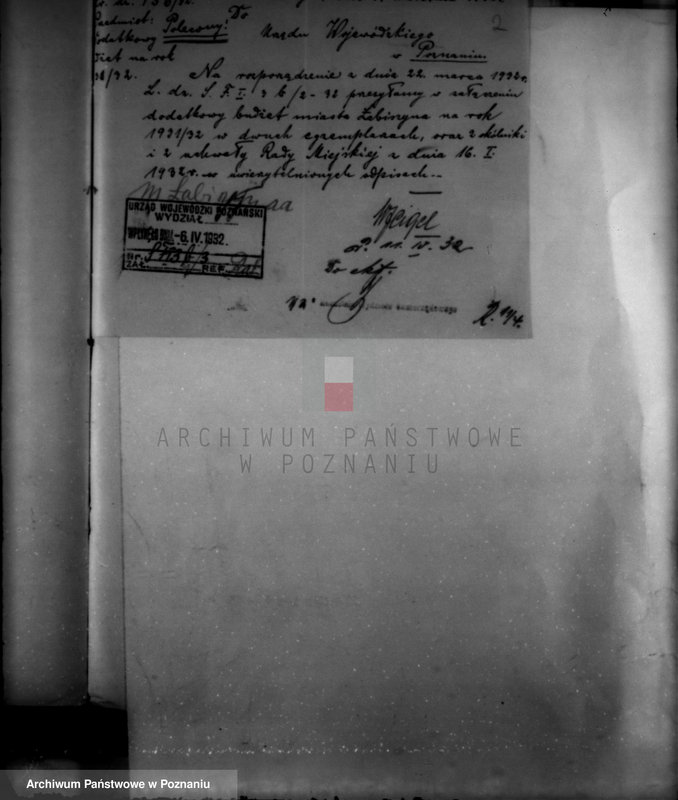 Przedmiot: Polecony. Do
dodatkowy Urzędu Wojewódzkiego
budżet na rok w Poznaniu.
1931/32. Na rozporządzenie z dnia 22. marca 1932 r.
L. dz. S. F. I. 3 b/2-32 przesyłamy w załączeniu
dodatkowy budżet miasta Łabiszyna na rok
1931/32 w dwuch egzemplarzach, oraz 2 okólniki
i 2 uchwały Rady Miejskiej z dnia 16. I.
1932 r. w uwierzytelnionych odpisach.
2
m Łabiszyna
URZĄD WOJEWÓDZKI POZNAŃSKI
WYDZIAŁ
WPŁYNĘŁO DNIA -6. IV. 1932.
Nr.
ZAŁ. REF.
IV. 32
Do akt.
ARCHIWUM PAŃSTWOWE
W POZNANIU
Archiwum Państwowe w Poznaniu